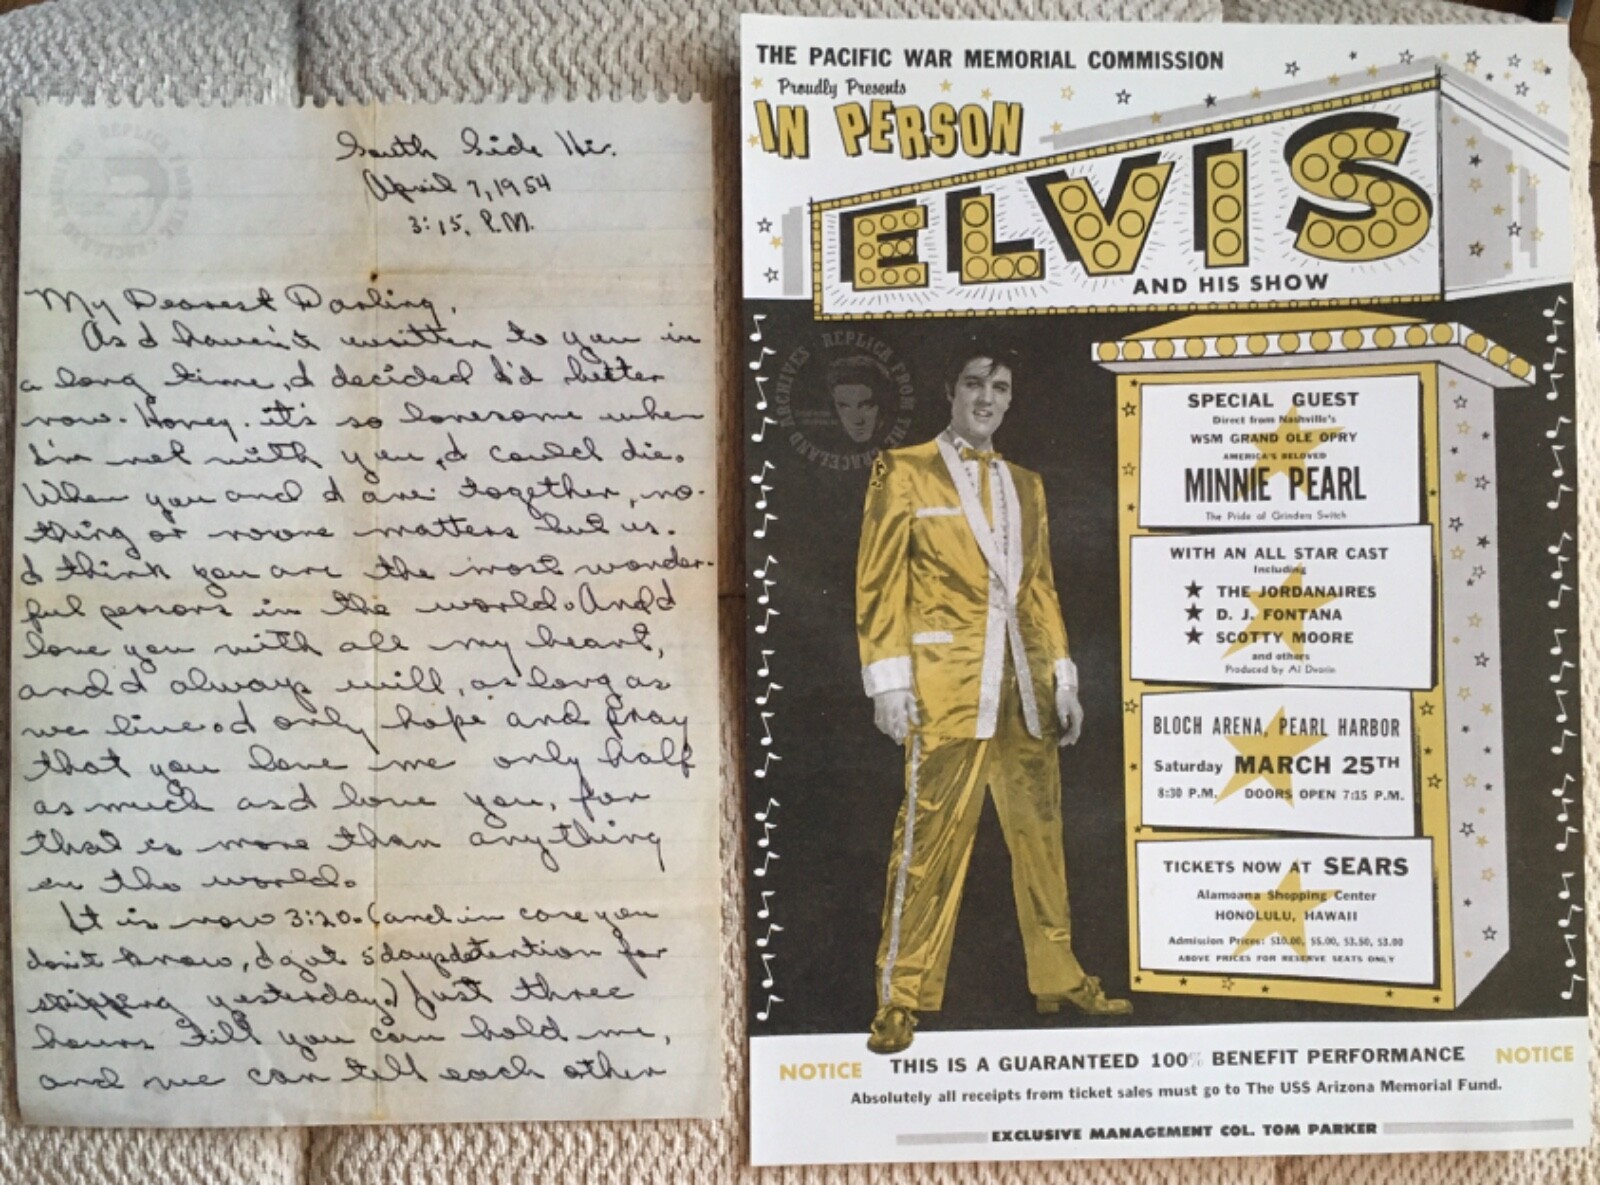 South Side Hi.
April 7, 1954
3:15, P.M.
My Dearest Darling,
As I haven't written to you in
a long time, I decided I'd better
now. Honey. it's so lonesome when
I'm not with you, I could die.
When you and I are together, no-
thing or noone matters but us.
I think you are the most wonder-
ful person in the world. And I
love you with all my heart,
and I always will, as long as
we live. I only hope and pray
that you love me only half
as much as I love you, for
that is more than anything
in the world.
It is now 3:20. (and in case you
don't know, I got 5 days detention for
skipping yesterday.) Just three
hours till you can hold me,
and we can tell each other
REPLICA FROM THE GRACELAND ARCHIVES
THE PACIFIC WAR MEMORIAL COMMISSION
Proudly Presents
IN PERSON
ELVIS
AND HIS SHOW
REPLICA FROM THE GRACELAND ARCHIVES
SPECIAL GUEST
Direct from Nashville's
WSM GRAND OLE OPRY
AMERICA'S BELOVED
MINNIE PEARL
The Pride of Grinders Switch
WITH AN ALL STAR CAST
Including
★ THE JORDANAIRES
★ D. J. FONTANA
★ SCOTTY MOORE
and others
Produced by Al Dvorin
BLOCH ARENA, PEARL HARBOR
Saturday MARCH 25TH
8:30 P.M. DOORS OPEN 7:15 P.M.
TICKETS NOW AT SEARS
Alamoana Shopping Center
HONOLULU, HAWAII
Admission Prices: $10.00, $5.00, $3.50, $3.00
ABOVE PRICES FOR RESERVE SEATS ONLY
NOTICE THIS IS A GUARANTEED 100% BENEFIT PERFORMANCE NOTICE
Absolutely all receipts from ticket sales must go to The USS Arizona Memorial Fund.
EXCLUSIVE MANAGEMENT COL. TOM PARKER